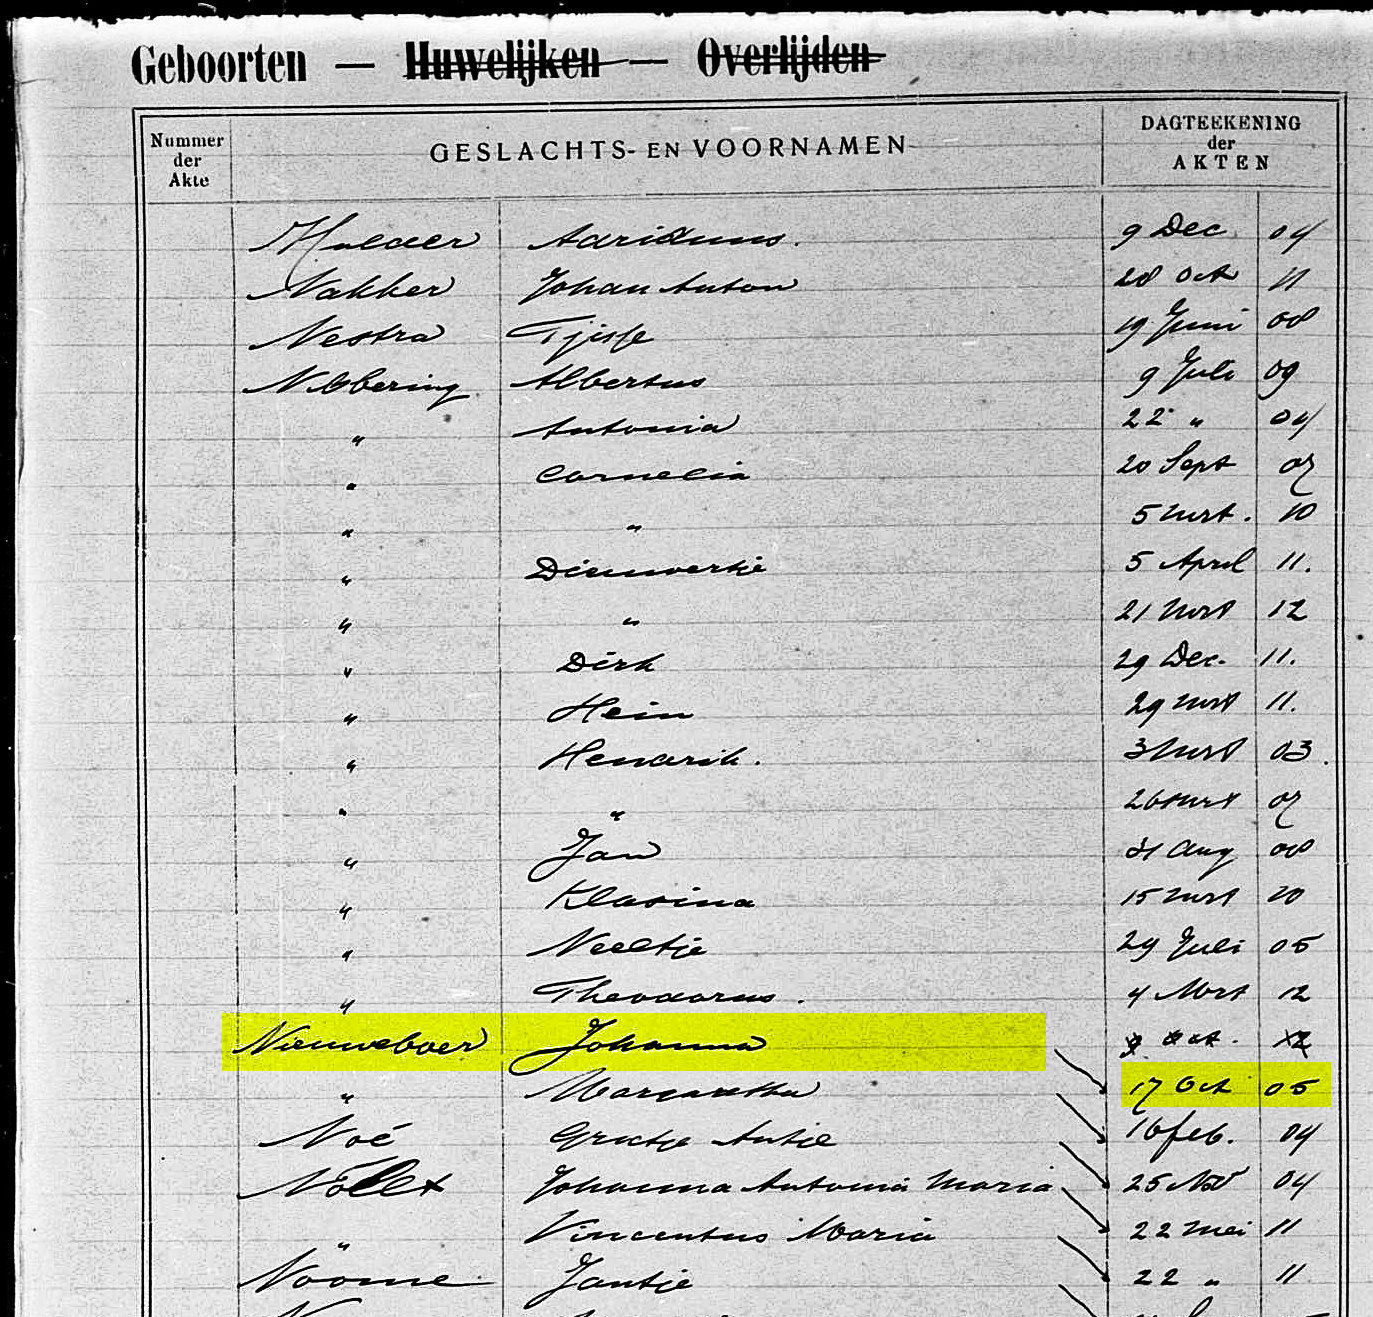 Geboorten — Huwelijken — Overlijden
Nummer der Akte GESLACHTS- EN VOORNAMEN DAGTEEKENING der AKTEN
Mulder Adrianus. 9 Dec. 04
Nakker Johan Anton 28 Oct 11
Nestra Tjisse 19 Juni 08
Nibbering Albertus 9 Juli 09
" Antonia 22 " 04
" Cornelia 20 Sept 07
" " 5 Mrt. 10
" Dieuwertje 5 April 11.
" " 21 Mrt 12
" Dirk 29 Dec. 11.
" Hein 29 Mrt 11.
" Hendrik. 3 Mrt 03.
" " 26 Mrt 07
" Jan 31 Aug 08
" Klasina 15 Mrt 10
" Neeltje 29 Juli 05
" Theodorus. 4 Mrt 12
Nieuweboer Johanna Oct. 12
" Margaretha 17 Oct 05
Noé Grietje Antje 16 feb. 04
Nöllt Johanna Antonia Maria 25 Nov 04
" Vincentus Maria 22 Mei 11
Nöome Jantje 22 " 11